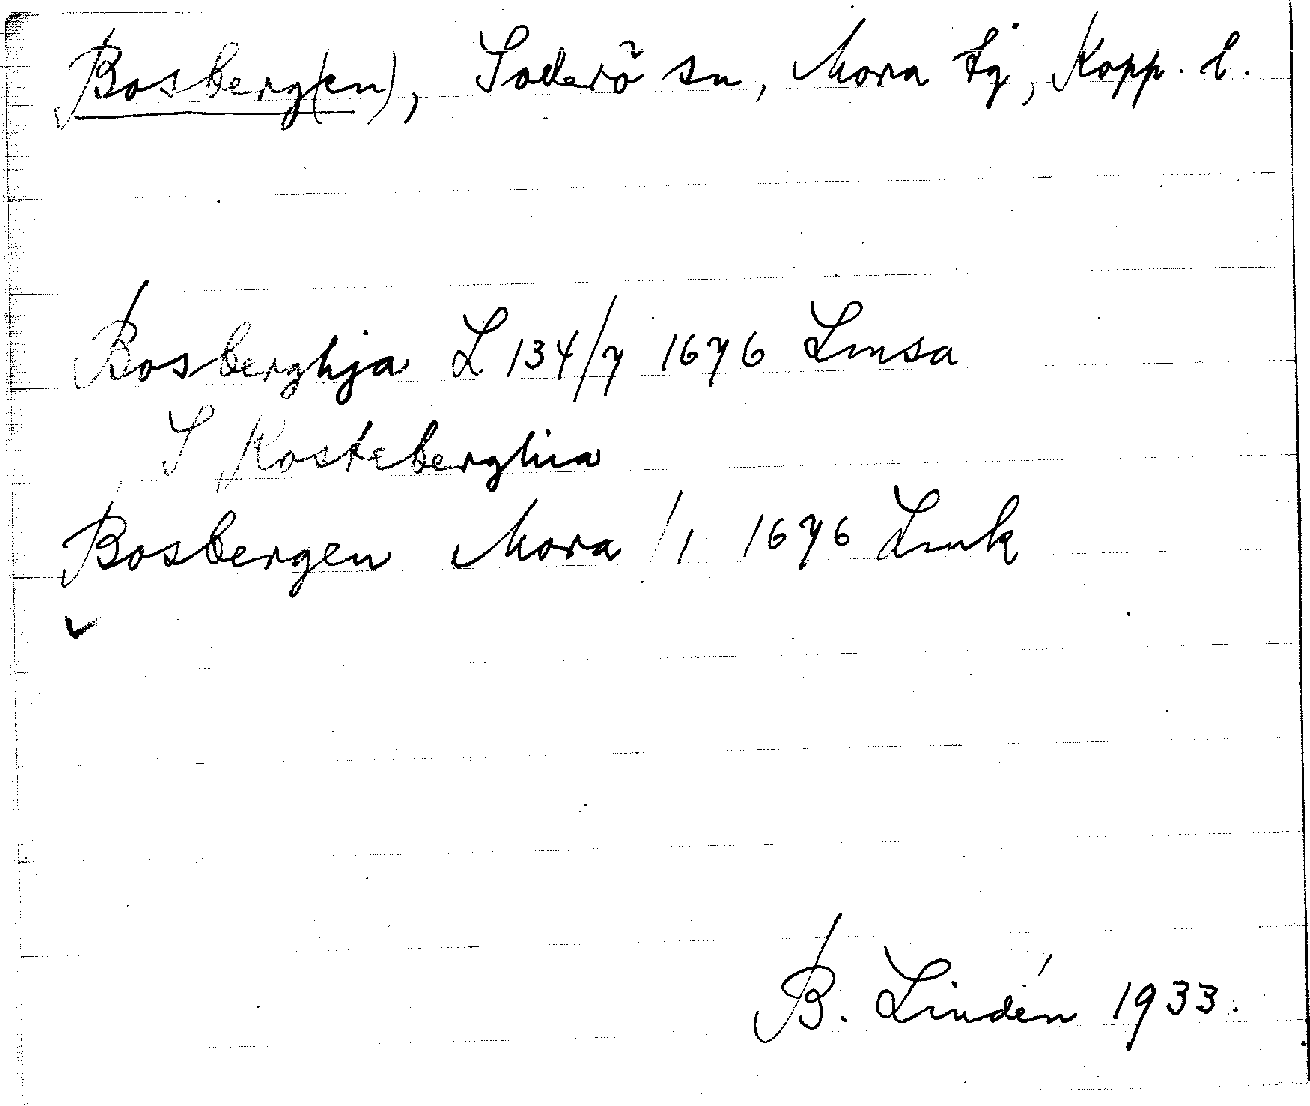 Bosberg(en), Soderö sn, Mora tg, Kopp. l.
Bosberghja L 134/7 1676 Lmsa
S Kosteberghia
Bosbergen Mora /1 1676 Lmk
B. Lindén 1933.